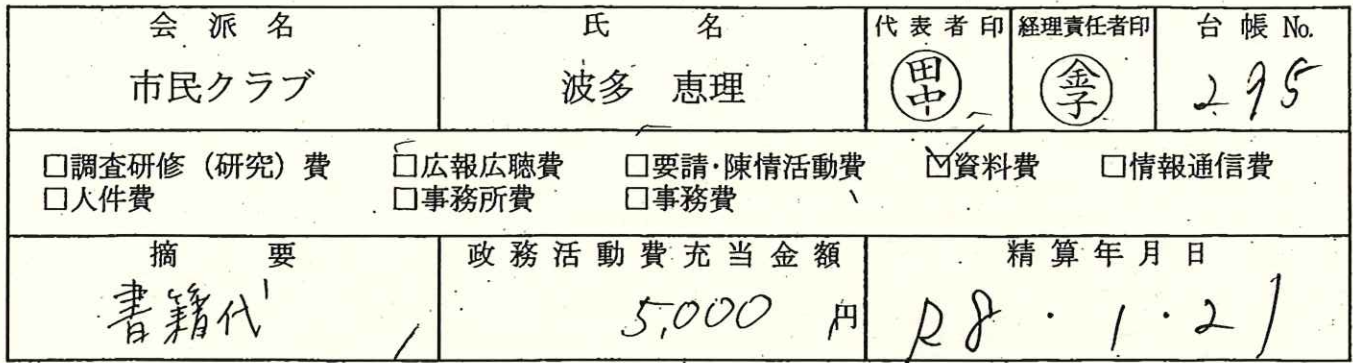 会派名 氏名 代表者印 経理責任者印 台帳No.
市民クラブ 波多 恵理 田中 金子 295
□調査研修（研究）費 □広報広聴費 □要請・陳情活動費 ☑資料費 □情報通信費
□人件費 □事務所費 □事務費
摘要 政務活動費充当金額 精算年月日
書籍代 5,000円 R8・1・21